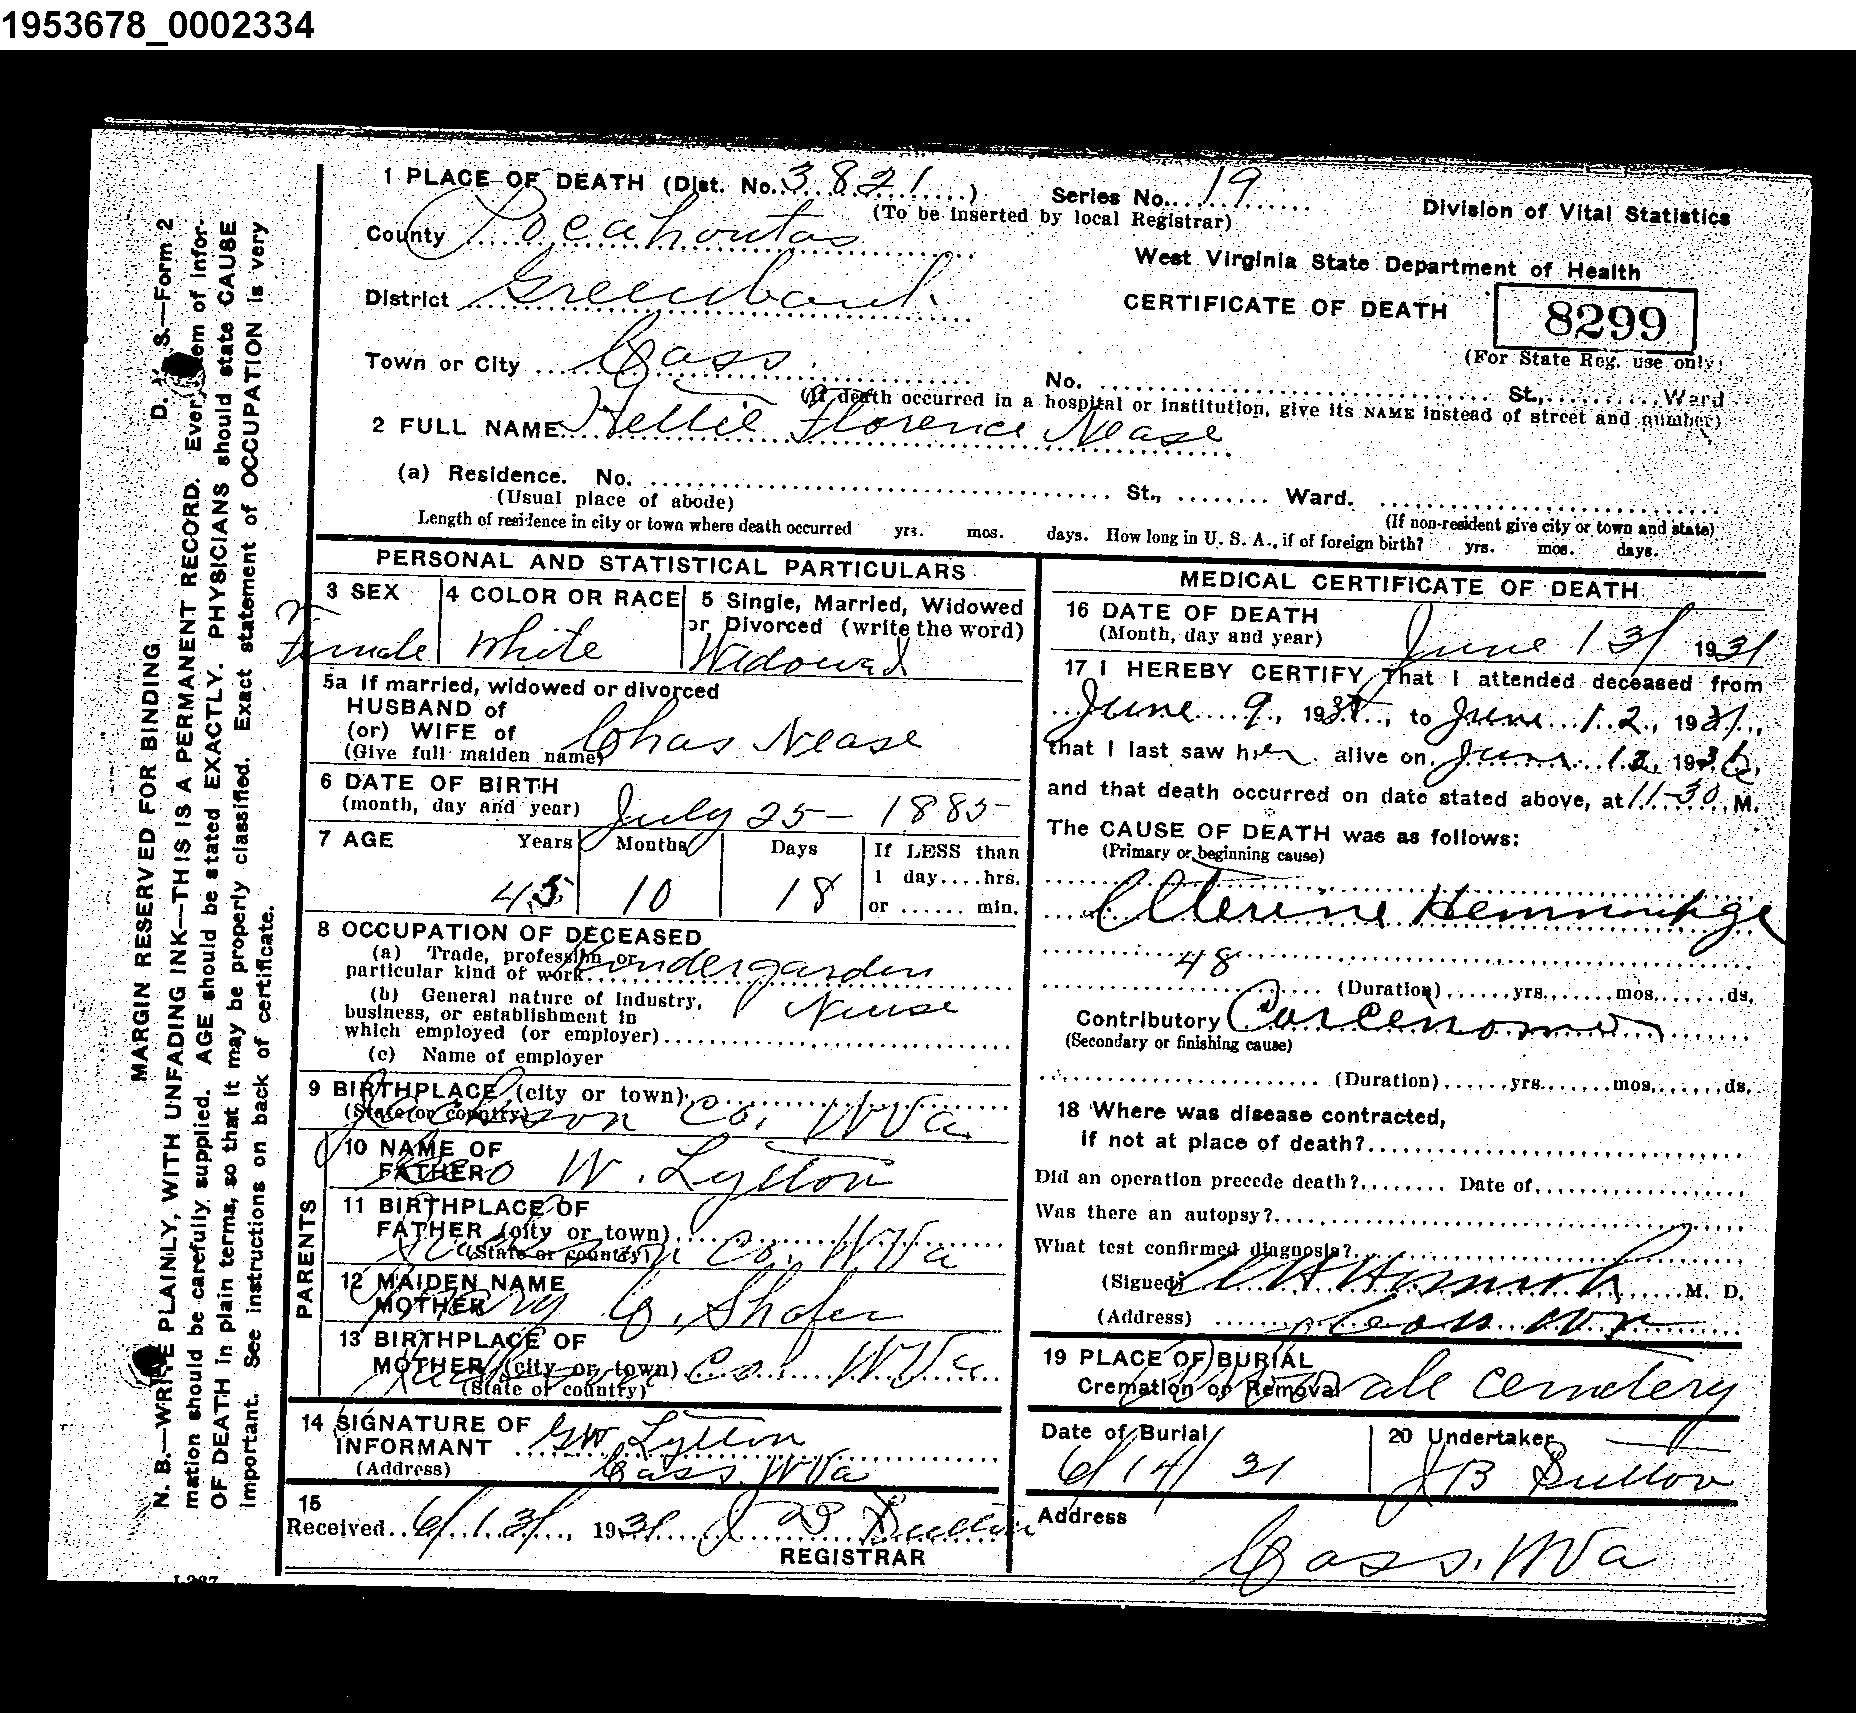 1953678_0002334
1 PLACE OF DEATH (Dist. No. 3821)
Series No. 19
(To be inserted by local Registrar)
Division of Vital Statistics
County Pocahontas
West Virginia State Department of Health
District Greenbank
CERTIFICATE OF DEATH
8299
(For State Reg. use only)
Town or City Cass
No. St., Ward
(If death occurred in a hospital or institution, give its NAME instead of street and number)
2 FULL NAME Nellie Florence Nease
(a) Residence. No. St., Ward.
(Usual place of abode)
(If non-resident give city or town and state)
Length of residence in city or town where death occurred yrs. mos. days. How long in U. S. A., if of foreign birth? yrs. mos. days.
PERSONAL AND STATISTICAL PARTICULARS
3 SEX
Female
4 COLOR OR RACE
White
5 Single, Married, Widowed
or Divorced (write the word)
Widowed
5a If married, widowed or divorced
HUSBAND of
(or) WIFE of
(Give full maiden name) Chas Nease
6 DATE OF BIRTH
(month, day and year) July 25 - 1885
7 AGE
Years Months Days
If LESS than
1 day....hrs.
or ...... min.
45 10 18
8 OCCUPATION OF DECEASED
(a) Trade, profession or
particular kind of work Kindergarden
(b) General nature of industry,
business, or establishment in
which employed (or employer)
Nurse
(c) Name of employer
9 BIRTHPLACE (city or town)
(State or country) Jackson Co. W Va
PARENTS
10 NAME OF
FATHER Geo W. Lytton
11 BIRTHPLACE OF
FATHER (city or town)
(State or country) Jackson Co. W Va
12 MAIDEN NAME
MOTHER Mary C. Shafer
13 BIRTHPLACE OF
MOTHER (city or town)
(State or country) Jackson Co. W Va
14 SIGNATURE OF
INFORMANT GW Lytton
(Address) Cass W Va
15
Received 6/13/, 1931 J B Sutton
REGISTRAR
MEDICAL CERTIFICATE OF DEATH
16 DATE OF DEATH
(Month, day and year) June 13/ 1931
17 I HEREBY CERTIFY That I attended deceased from
June 9, 1931, to June 12, 1931,
that I last saw her alive on June 12, 193
and that death occurred on date stated above, at 11-30 M.
The CAUSE OF DEATH was as follows:
(Primary or beginning cause)
Uterine Hemmorhge
48
(Duration) yrs. mos. ds.
Contributory Carcenoma
(Secondary or finishing cause)
(Duration) yrs. mos. ds.
18 Where was disease contracted,
if not at place of death?
Did an operation precede death? Date of
Was there an autopsy?
What test confirmed diagnosis?
(Signed) M. D.
(Address) Cass W Va
19 PLACE OF BURIAL
Cremation or Removal Cemetery
Date of Burial
6/14/31
20 Undertaker
J B Sutton
Address
Cass, W Va
D. V. S.—Form 2
MARGIN RESERVED FOR BINDING
N. B.—WRITE PLAINLY, WITH UNFADING INK—THIS IS A PERMANENT RECORD. Every item of infor-
mation should be carefully supplied. AGE should be stated EXACTLY. PHYSICIANS should state CAUSE
OF DEATH in plain terms, so that it may be properly classified. Exact statement of OCCUPATION is very
important. See instructions on back of certificate.